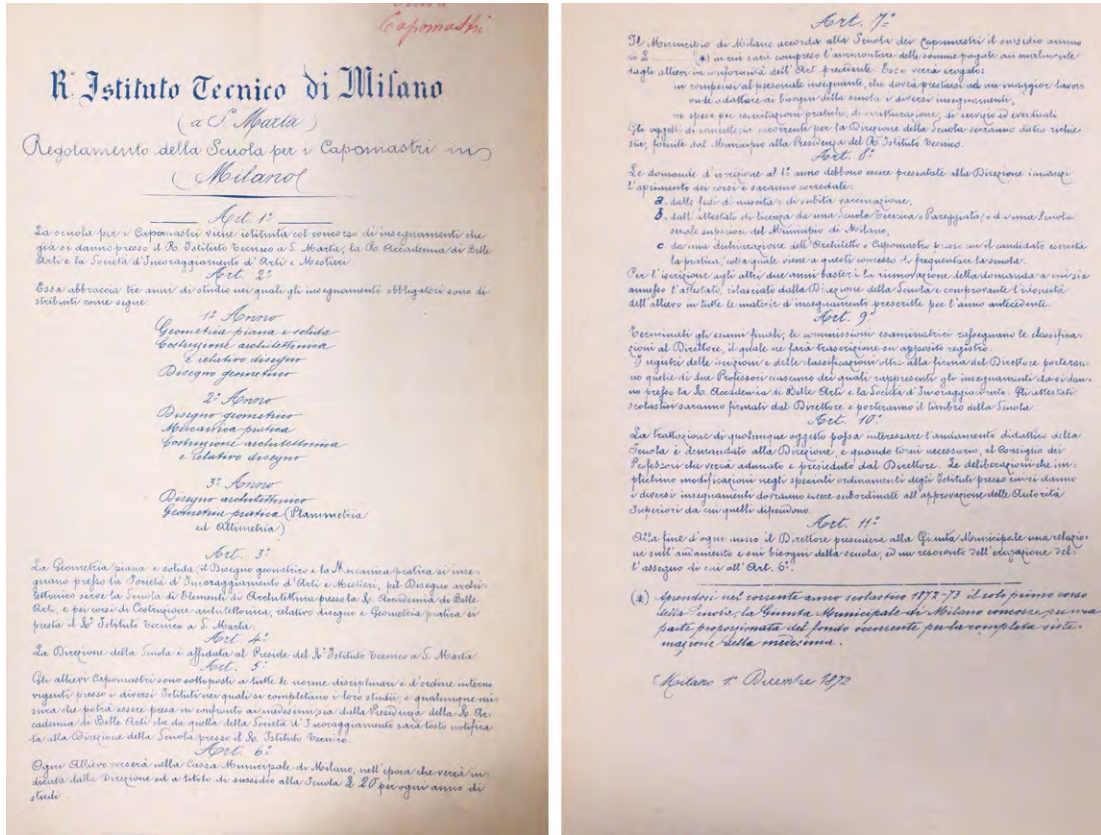 Capomastri
R. Istituto Tecnico di Milano
(a S. Marta)
Regolamento della Scuola per i Capomastri in
Milano
Art. 1º
La scuola per i Capomastri viene istituita col concorso di insegnamenti che
già si danno presso il R. Istituto Tecnico a S. Marta, la R. Accademia di Belle
Arti e la Società d'Incoraggiamento d'Arti e Mestieri.
Art. 2º
Essa abbraccia tre anni di studio nei quali gli insegnamenti obbligatori sono di-
stribuiti come segue:
1º Anno
Geometria piana e solida
Costruzione architettonica
e relativo disegno
Disegno geometrico
2º Anno
Disegno geometrico
Meccanica pratica
Costruzione architettonica
e relativo disegno
3º Anno
Disegno architettonico
Geometria pratica (Planimetria
ed Altimetria)
Art. 3º
La Geometria piana e solida, il Disegno geometrico e la Meccanica pratica si inse-
gnano presso la Società d'Incoraggiamento d'Arti e Mestieri, pel Disegno archi-
tettonico serve la Scuola di Elementi di Architettura presso la R. Accademia di Belle
Arti, e pei corsi di Costruzione architettonica, relativo disegno e Geometria pratica si
presta il R. Istituto Tecnico a S. Marta.
Art. 4º
La Direzione della Scuola è affidata al Preside del R. Istituto Tecnico a S. Marta.
Art. 5º
Gli allievi Capomastri sono sottoposti a tutte le norme disciplinari e d'ordine interno
vigenti presso i diversi Istituti nei quali si completano i loro studii, e qualunque mi-
sura che potrà essere presa in confronto ai medesimi, sia dalla Presidenza della R. Ac-
cademia di Belle Arti che da quella della Società d'Incoraggiamento sarà tosto notifica-
ta alla Direzione della Scuola presso il R. Istituto Tecnico.
Art. 6º
Ogni Allievo verserà nella Cassa Municipale di Milano, nell'epoca che verrà in-
dicata dalla Direzione ed a titolo di sussidio alla Scuola £ 20 per ogni anno di
studi.
Art. 7º
Il Municipio di Milano accorda alla Scuola dei Capomastri il sussidio annuo
di £ ........ (*) in cui sarà compreso l'ammontare delle somme pagate annualmente
dagli allievi in conformità dell'Art precedente. Esso verrà erogato:
in compensi al personale insegnante, che dovrà prestarsi ad un maggior lavoro
onde adattare ai bisogni della scuola i diversi insegnamenti,
in spese per esercitazioni pratiche, di di servizio ed eventuali
Gli oggetti di cancelleria occorrenti per la Direzione della Scuola verranno dietro richie-
sta, forniti dal Municipio alla Presidenza del R. Istituto Tecnico.
Art. 8º
Le domande d'iscrizione al 1º anno debbono essere presentate alla Direzione innanzi
l'aprimento dei corsi e saranno corredate:
a. dalle fedi di nascita e di subita vaccinazione,
b. dall'attestato di licenza da una Scuola Tecnica o Pareggiata, o da una Scuola
serale superiore del Municipio di Milano,
c. da una dichiarazione dell'Architetto o Capomastro presso cui il candidato esercita
la pratica, colla quale viene a questi concesso di frequentare la scuola.
Per l'iscrizione agli altri due anni basterà la rinnovazione della domanda a cui sia
annesso l'attestato, rilasciato dalla Direzione della Scuola e comprovante l'idoneità
dell'allievo in tutte le materie d'insegnamento prescritte per l'anno antecedente.
Art. 9º
Terminati gli esami finali, le commissioni esaminatrici rassegnano le classifica-
zioni al Direttore, il quale ne farà trascrizione su apposito registro.
I registri delle iscrizioni e delle classificazioni oltre alla firma del Direttore porteran-
no quelle di due Professori ciascuno dei quali rappresenti gli insegnamenti che si dan-
no presso la R. Accademia di Belle Arti e la Società d'Incoraggiamento. Gli attestati
scolastici saranno firmati dal Direttore e porteranno il timbro della Scuola.
Art. 10º
La trattazione di qualunque oggetto possa interessare l'andamento didattico della
Scuola è demandato alla Direzione, e quando torni necessario, al Consiglio dei
Professori che verrà adunato e presieduto dal Direttore. Le deliberazioni che im-
plichino modificazioni negli speciali ordinamenti degli Istituti presso cui si danno
i diversi insegnamenti dovranno essere subordinate all'approvazione delle Autorità
Superiori da cui quelli dipendono.
Art. 11º
Alla fine d'ogni anno il Direttore presenterà alla Giunta Municipale una relazio-
ne sull'andamento e sui bisogni della scuola, ed un resoconto dell'erogazione del-
l'assegno di cui all'Art. 6º.
(*) Aprendosi nel corrente anno scolastico 1872-73 il solo primo corso
della Scuola, la Giunta Municipale di Milano concorse per una
parte proporzionata del fondo occorrente per la completa siste-
mazione della medesima.
Milano 1º Dicembre 1872